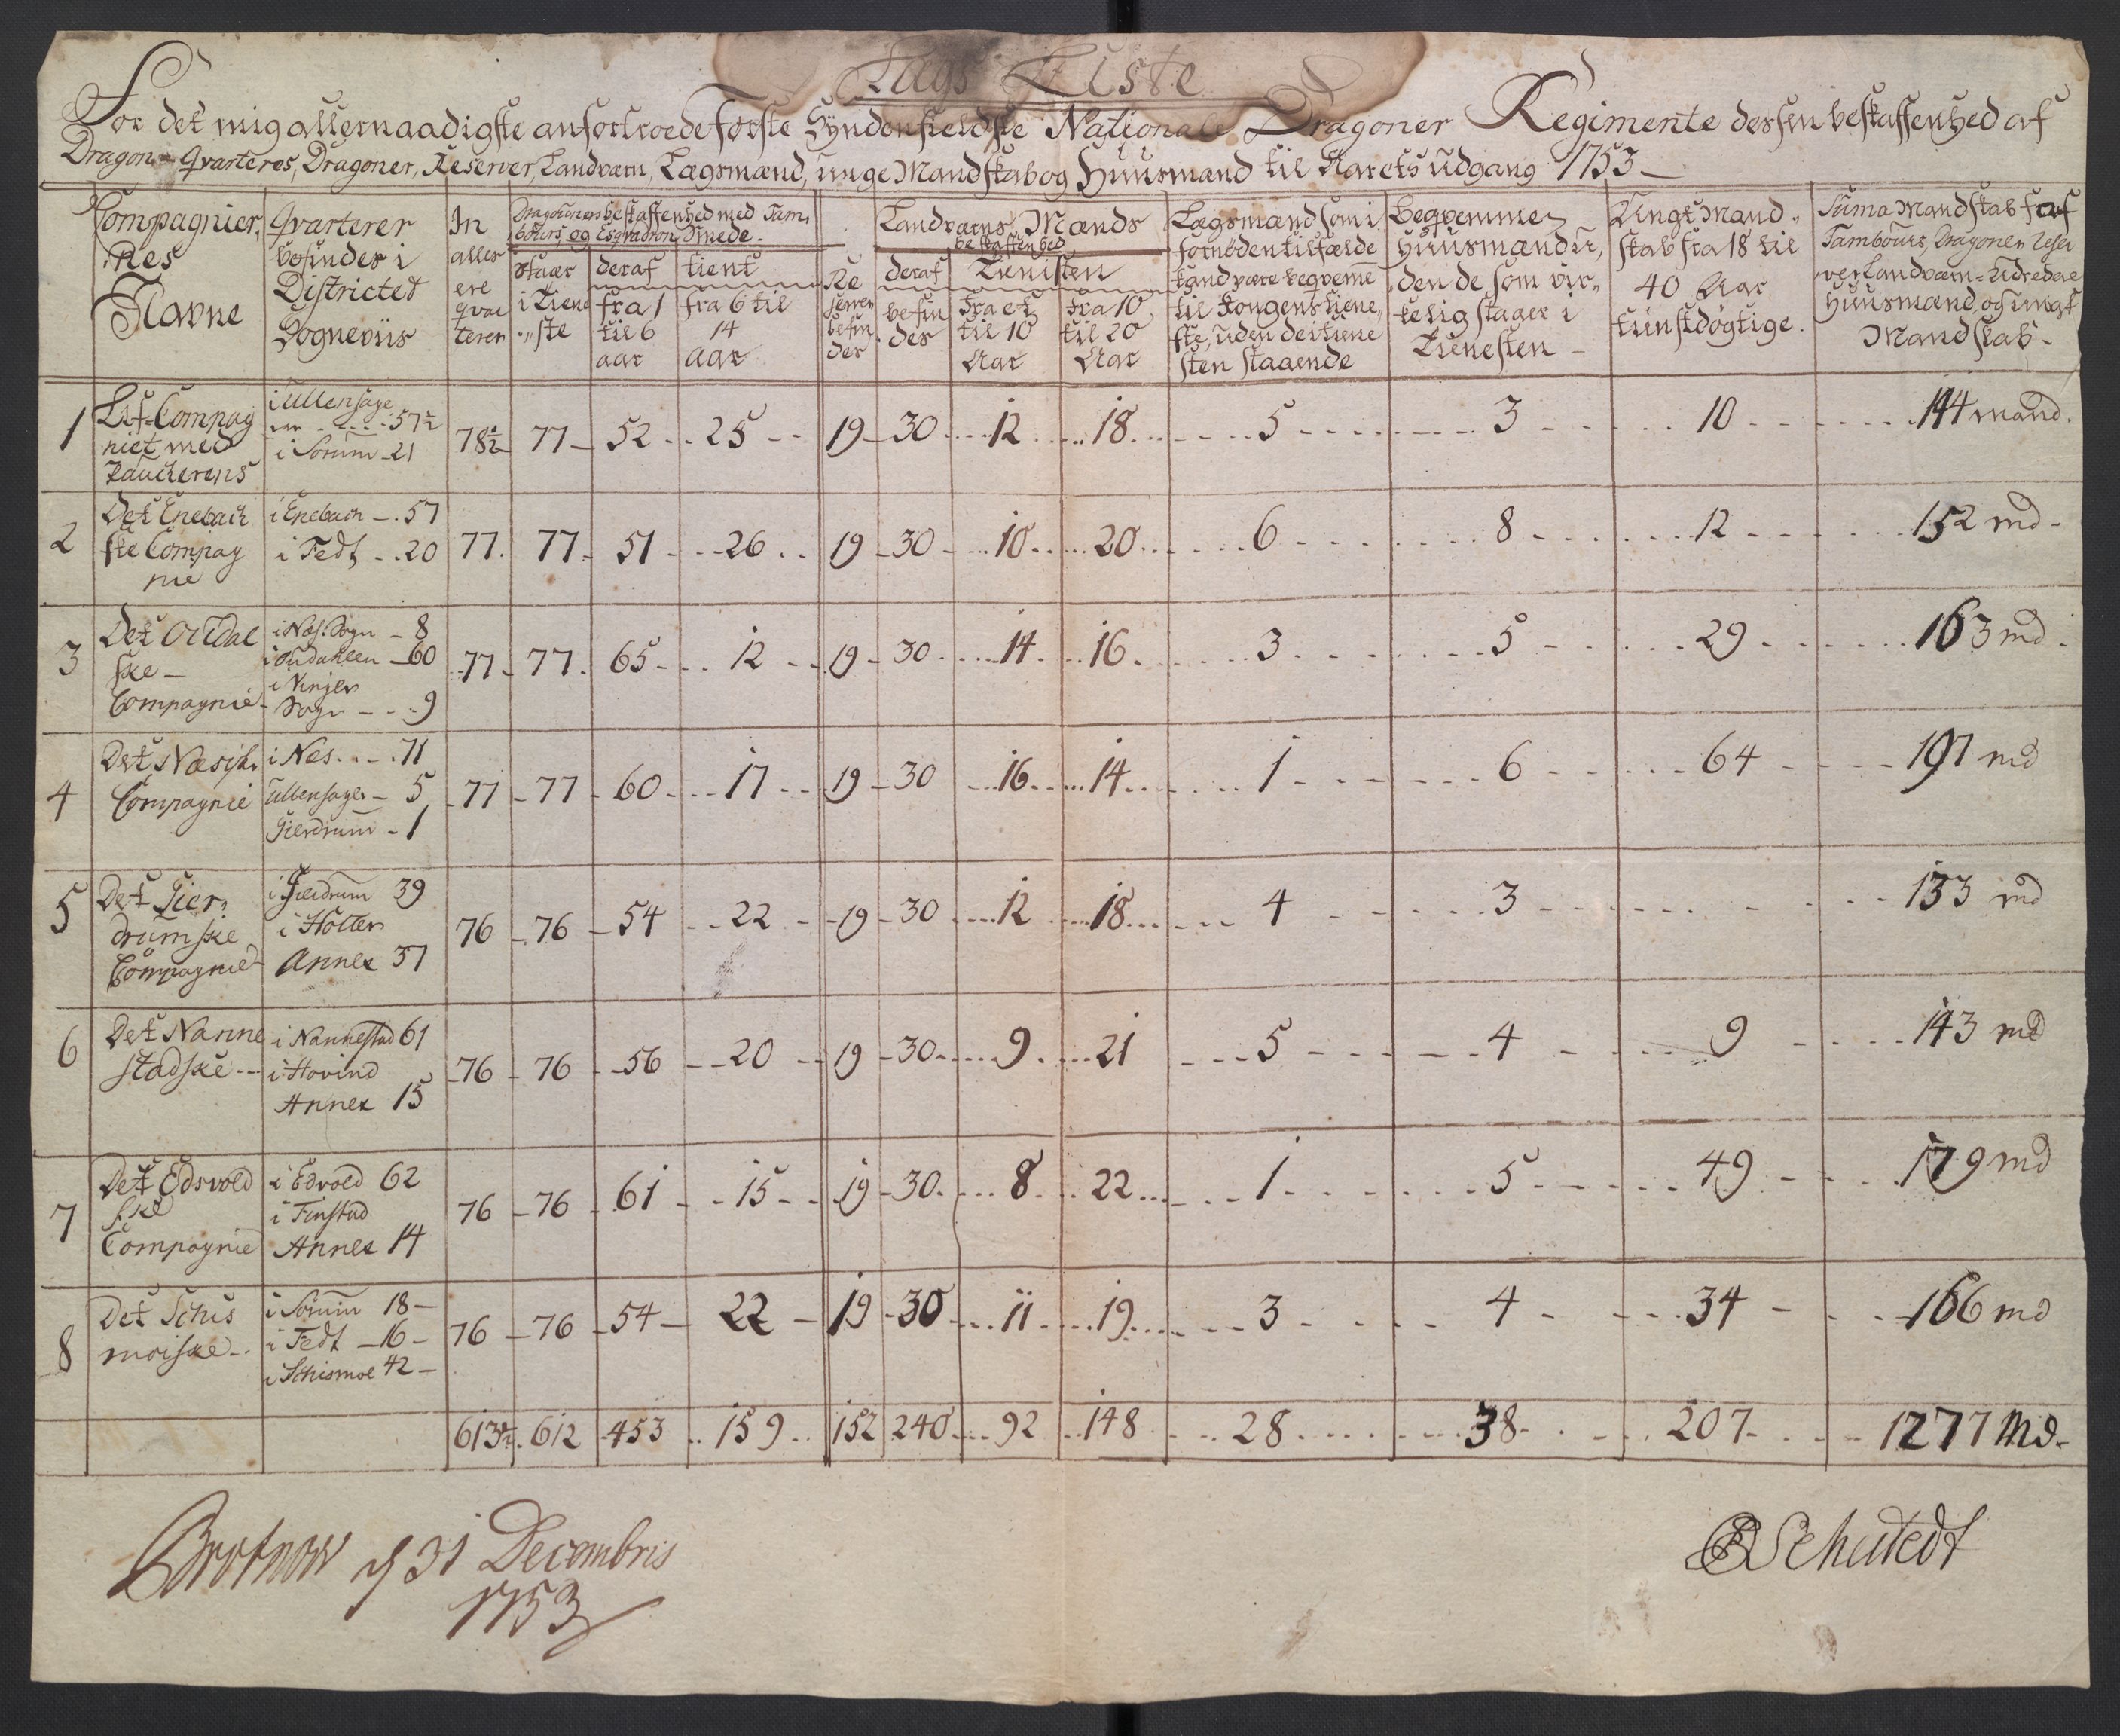 Lægs Liste
For det mig allernaadigste anfortroede Første Syndenfieldske Nationale Dragoner Regimente dessen beskaffenhed af
Dragon-Qvarterer, Dragoner, Reserver, Landværn, Lægsmænd, unge Mandskab og Huusmænd til Aarets udgang 1753
Compagnier,
nes
Navne
Qvarterer
befinder i
Districtet
Sogneviis
In
alles
ere
qvar
terer
Dragouners beskaffenhed med Tam,
bours og Esqvadron Smede.
staar
i Tiene
ste
deraf
fra 1
til 6
aar
tient
fra 6 til
14
aar
Re
server
befin
der
Landværns Mænds
beskaffenhed
deraf
befin
des
Tienisten
fra et
til 10
Aar
fra 10
til 20
Aar
Lægsmænd som i
fornöden tilfælde
kand være beqveme
til Kongens tiene,
ste, uden de i tiene
sten staaende
Beqvemme
Huusmænd u,
den de som vir,
kelig staaer i
Tienesten
Ungt Mand,
skab fra 18 til
40 Aar
tienstdøgtige.
Suma Mandskab saaf
Tambours, Dragoner, Reser
ver Landværn-Udredere
Huusmænd, og ungt
Mandskab.
1 Lif-Compag
niet med
Pauckerens
i Ullensage
57½
i Sorum 21
78½ 77 52 25 19 30 12 18 5 3 10 144 mand.
2 Det Enebach
ske Compag
nie
i Enebach 57
i Fedt 20
77. 77 51 26 19 30 10 20 6 8 12 152 md
3 Det Oudal
ske
Compagnie
i Næs Sogn 8
i Oudahlen 60
i Vinger
Sogn 9
77 77 65 12 19 30 14 16 3 5 29 163 md
4 Det Næsisk.
Compagnie
i Nes 71
Ullensager 5
Gierdrum 1
77 77 60 17 19 30 16 14 1 6 64 197 md
5 Det Gier,
drumske
Compagnie
i Gierdrum 39
i Holter
Annex 37
76 76 54 22 19 30 12 18 4 3 133 md
6 Det Nanne
stadske
i Nannestad 61
i Hovind
Annex 15
76 76 56 20 19 30 9 21 5 4 9 143 md
7 Det Edsvold
ske
Compagnie
i Edvold 62
i Finstad
Annex 14
76 76 61 15 19 30 8 22 1 5 49 179 md
8 Det Schis
moiske
i Sorum 18
i Fedt 16
i Schismoe 42
76 76 54 22 19 30 11 19 3 4 34 166 md
613½ 612 453 159 152 240 92 148 28 38 207 1277 Md.
Brotnow d 31 Decembris
1753
Schutedt